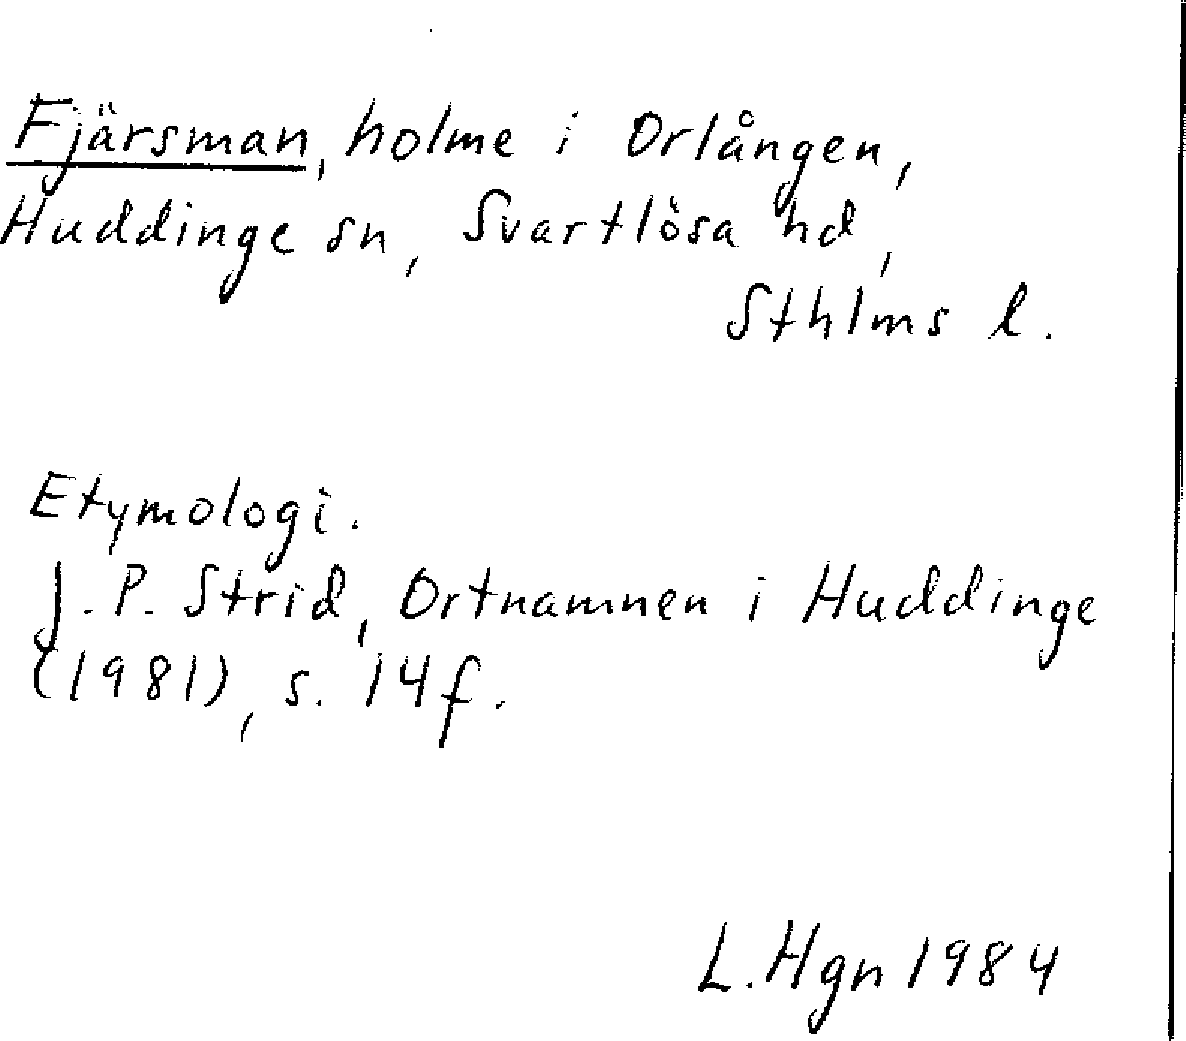 Fjärsman, holme i Orlången,
Huddinge sn, Svartlösa hd,
Sthlms l.
Etymologi.
J. P. Strid, Ortnamnen i Huddinge
(1981), s. 14f.
L. Hgn 1984